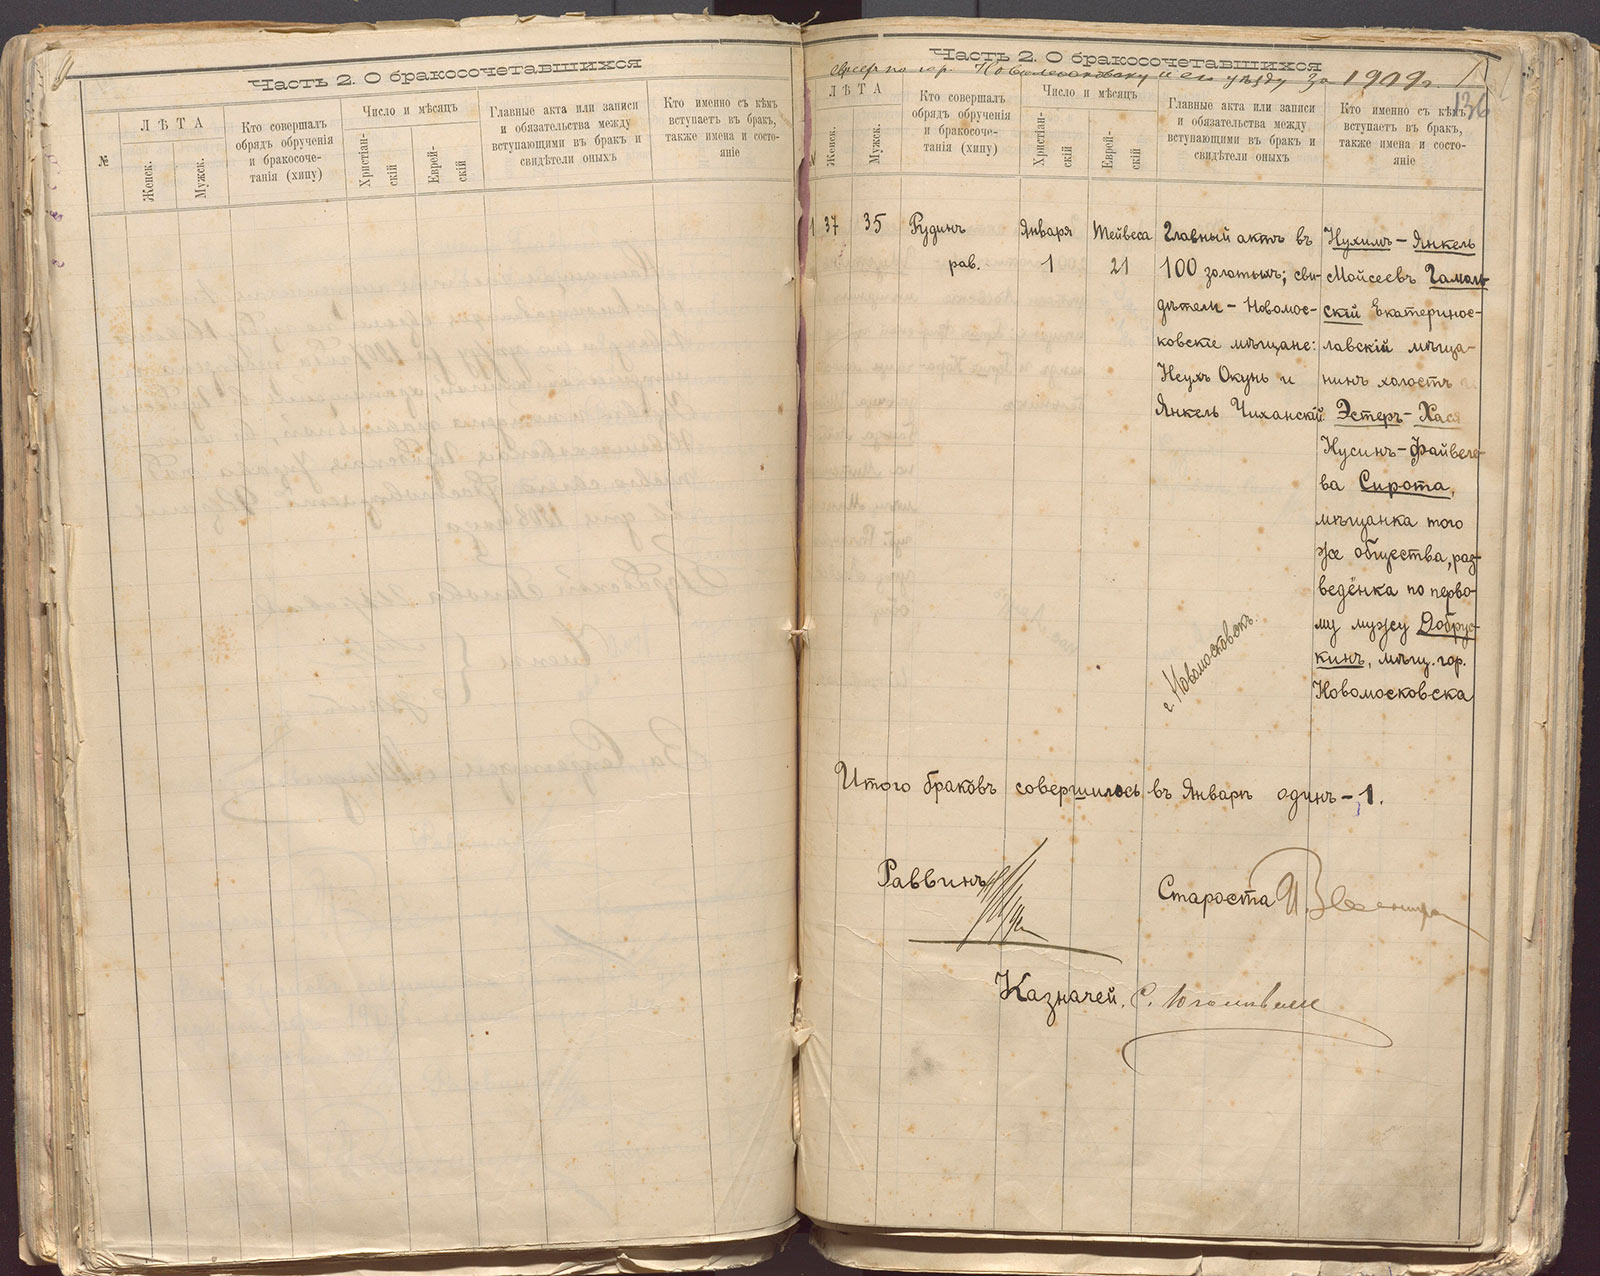 Часть 2. О бракосочетавшихся
№
ЛѢТА
Женск.
Мужск.
Кто совершалъ
обрядъ обрученія
и бракосоче-
танія (хипу)
Число и мѣсяцъ
Христіан-
скій
Еврей-
скій
Главные акта или записи
и обязательства между
вступающими въ бракъ и
свидѣтели оныхъ
Кто именно съ кѣмъ
вступаетъ въ бракъ,
также имена и состо-
яніе
Часть 2. О бракосочетавшихся
евреевъ по гор. Новомосковску и его уѣзду за 1909 г.
136
ЛѢТА
Женск.
Мужск.
Кто совершалъ
обрядъ обрученія
и бракосоче-
танія (хипу)
Число и мѣсяцъ
Христіан-
скій
Еврей-
скій
Главные акта или записи
и обязательства между
вступающими въ бракъ и
свидѣтели оныхъ
Кто именно съ кѣмъ
вступаетъ въ бракъ,
также имена и состо-
яніе
1
37
35
Рудинъ
рав.
Января
1
Тейвеса
21
Главный актъ въ
100 золотыхъ; сви-
дѣтели – Новомос-
ковскіе мѣщане:
Неухъ Окунь и
Янкель Чиханскій.
Нухимъ – Янкель
Мойсеевъ Гамаль-
скій Екатеринос-
лавскій мѣща-
нинъ холостъ и
Эстеръ – Хася
Нусинъ – Файвело-
ва Сирота,
мѣщанка того
же общества, раз-
ведёнка по перво-
му мужу Добрус-
кинъ, мѣщ. гор.
Новомосковска
г. Новомосковскъ.
Итого браковъ совершилось въ Январѣ одинъ – 1.
Раввинъ
Староста
Казначей.